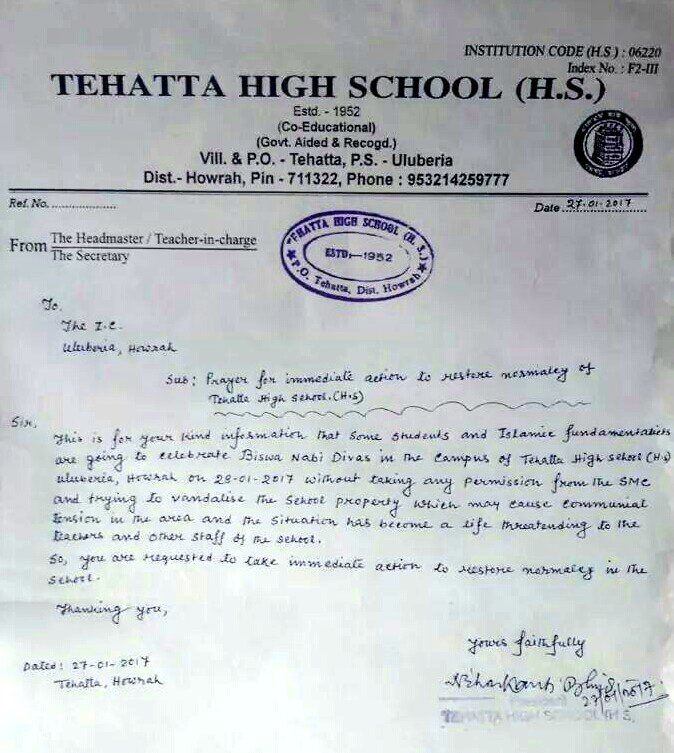 INSTITUTION CODE (H.S.) : 06220
Index No. : F2-III
TEHATTA HIGH SCHOOL (H.S.)
Estd. - 1952
(Co-Educational)
(Govt. Aided & Recogd.)
Vill. & P.O. - Tehatta, P.S. - Uluberia
Dist.- Howrah, Pin - 711322, Phone : 953214259777
Ref. No. ..................
Date 27-01-2017
From The Headmaster / Teacher-in-charge
The Secretary
TEHATTA HIGH SCHOOL (H. S.)
ESTD.-1952
★ P.O. Tehatta, Dist. Howrah ★
To.
The I.C.
Uluberia, Howrah
Sub: Prayer for immediate action to restore normalcy of
Tehatta High School.(H.S)
Sir,
This is for your kind information that some students and Islamic fundamentalists
are going to celebrate Biswa Nabi Divas in the campus of Tehatta High School (H.S)
Uluberia, Howrah on 28-01-2017 without taking any permission from the SMC
and trying to vandalise the School property which may cause communal
tension in the area and the situation has become a life threatending to the
teachers and other staff of the school.
So, you are requested to take immediate action to restore normalcy in the
School.
Thanking you,
Yours faithfully
Dated: 27-01-2017
Tehatta, Howrah
27/01/2017
TEHATTA HIGH SCHOOL (H.S.